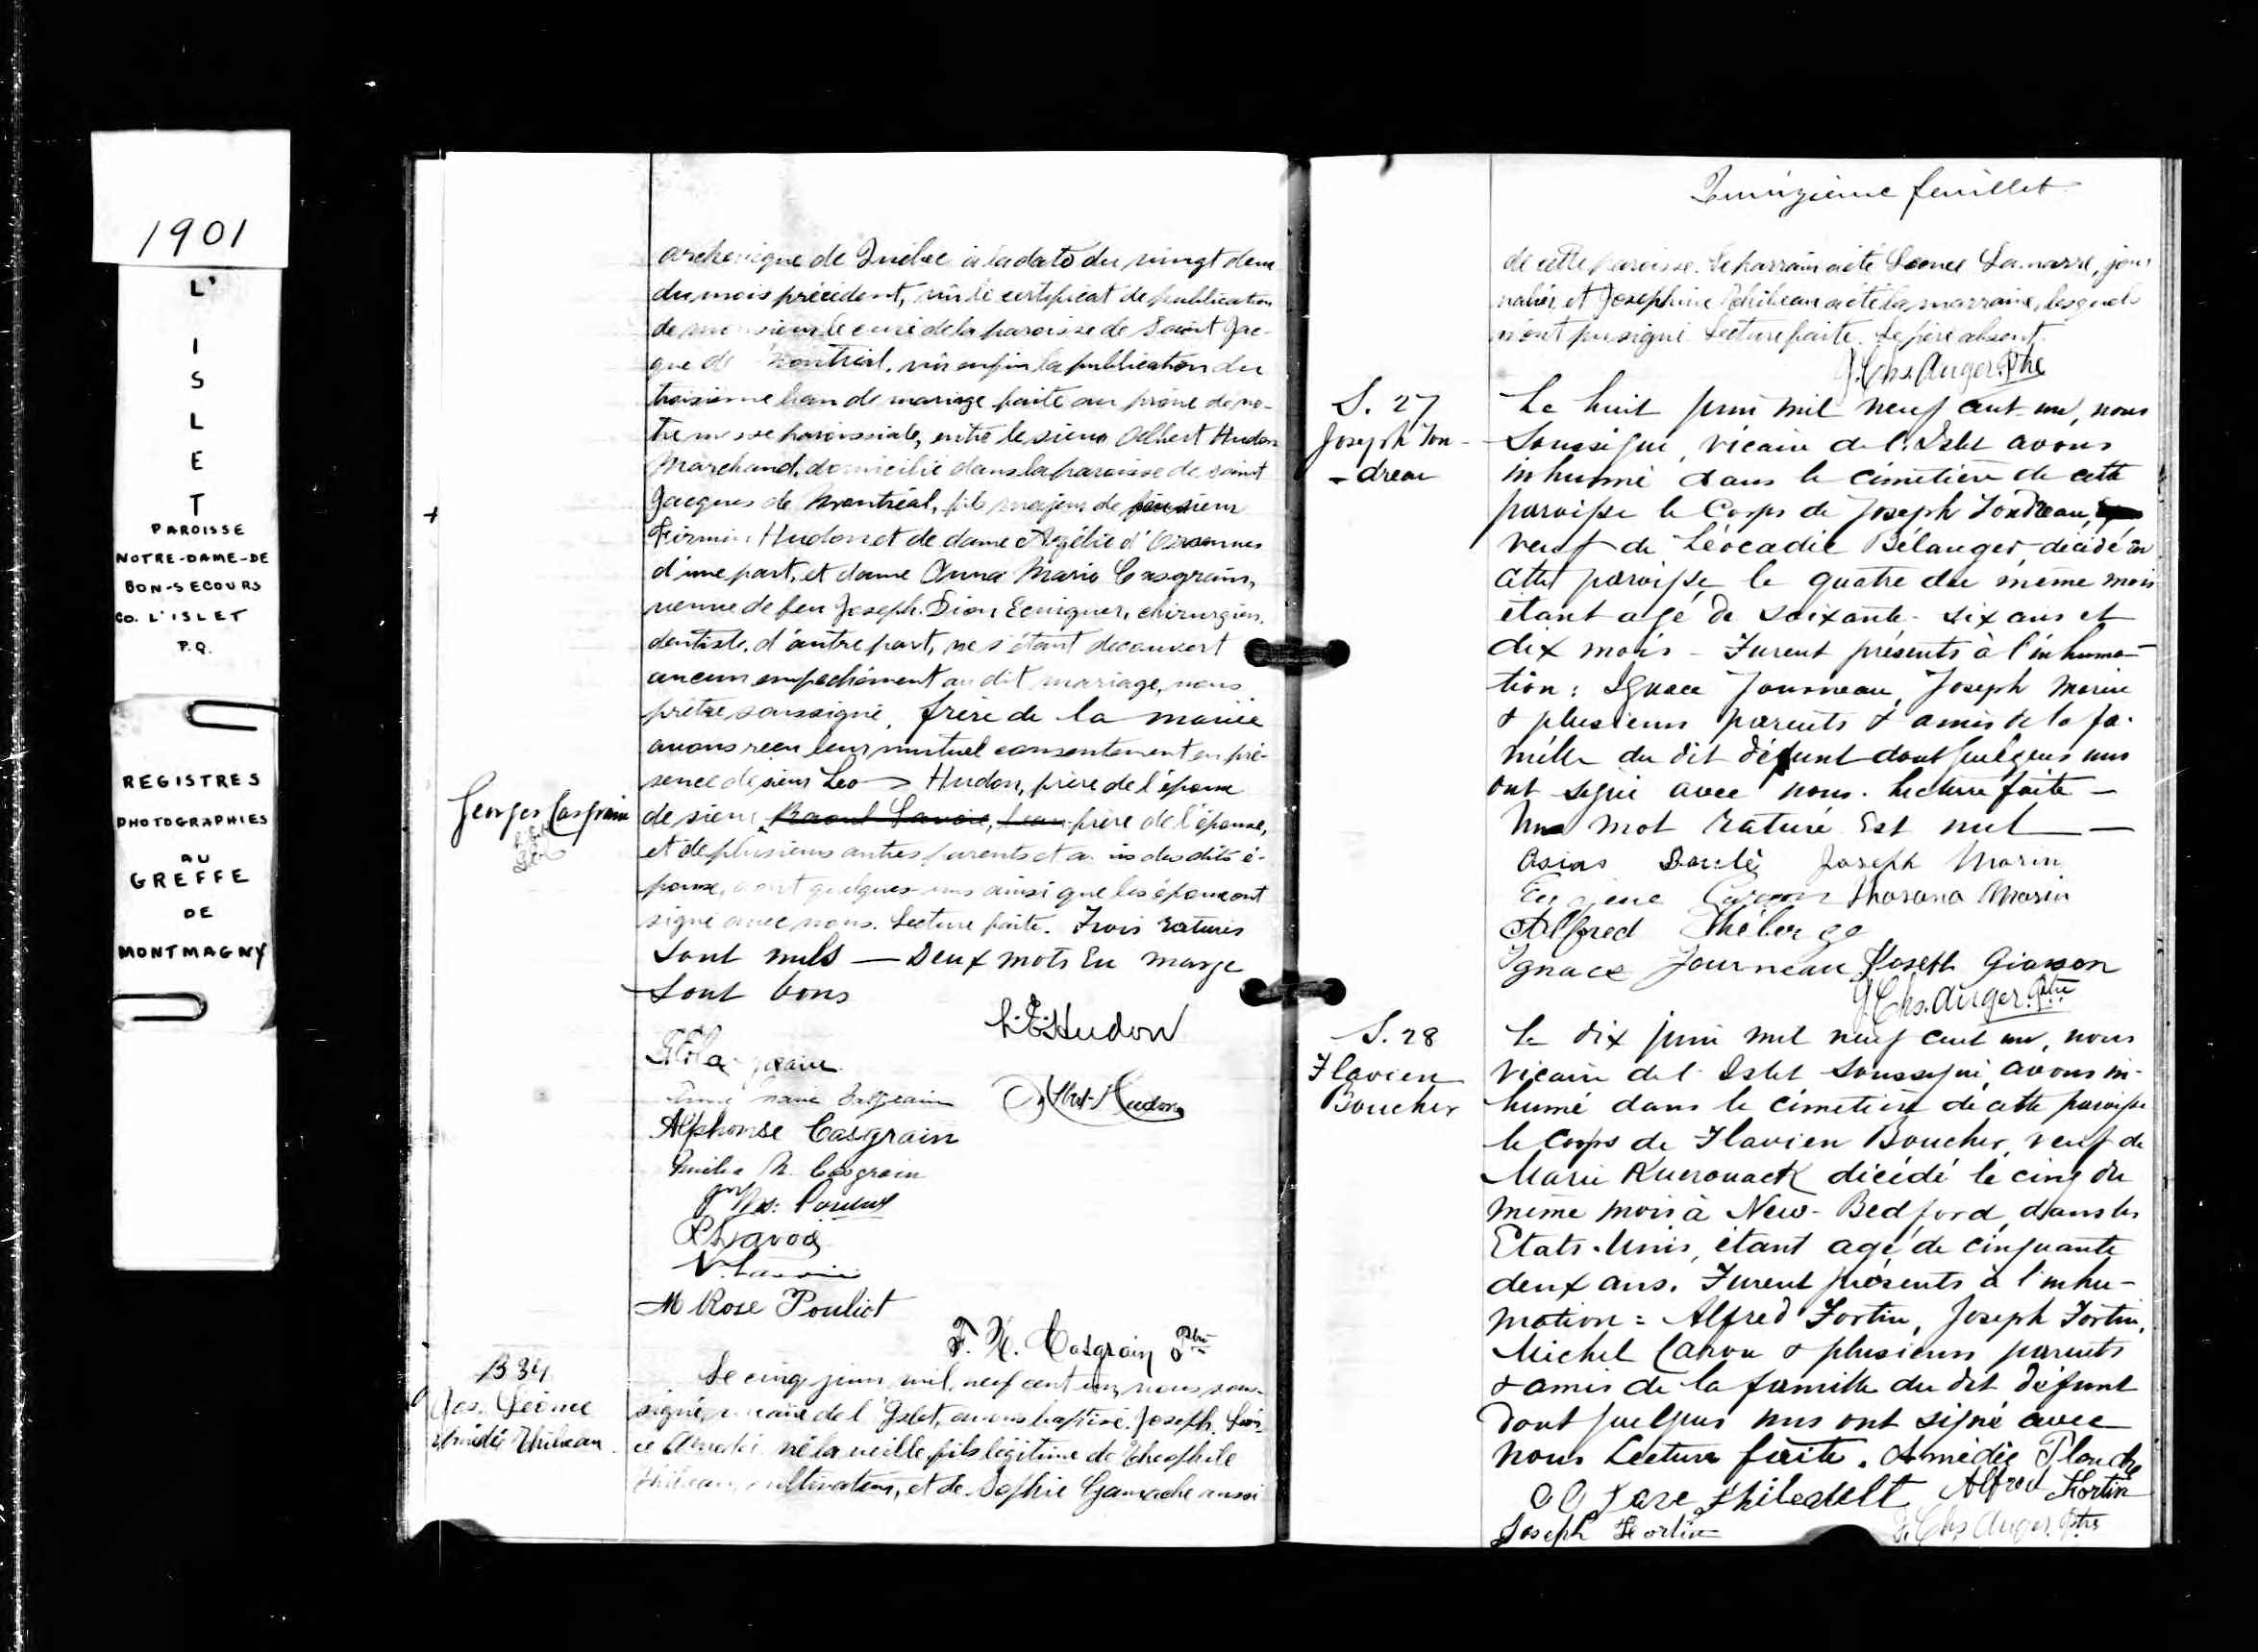 1901
L'
I
S
L
E
T
PAROISSE
NOTRE-DAME-DE
BON-SECOURS
CO. L'ISLET
P.Q.
REGISTRES
PHOTOGRAPHIES
AU
GREFFE
DE
MONTMAGNY
archevêque de Québec à la date du vingt deux
du mois précédent, vu le certificat de publication
de monsieur le curé de la paroisse de Saint Jac-
que de Montréal, vu enfin la publication du
troisième ban de mariage faite au prône de no-
tre messe paroissiale, entre le sieur Albert Hudon
Marchand, domicilié dans la paroisse de saint
Jacques de Montréal, fils majeur de sieur
Firmin Hudon et de dame Azélie d'
d'une part, et dame Anna Marie Casgrain,
veuve de feu Joseph. Dion Ecuigner, chirurgien
dentiste, d'autre part, ne s'étant decouvert
aucun empechement au dit mariage, nous
prêtre soussigné, frère de la mariée
avons reçu leur mutuel consentement en pré-
sence de sieur Leo Hudon, frère de l'époux
Georges Casgrain
de sieur Raoul Lavoie, frère de l'épouse,
et de plusieurs autres parents et amis des dits é-
poux, dont quelques-uns ainsi que les époux ont
signé avec nous. Lecture faite. Trois ratures
sont nuls — Deux mots en marge
sont bons
L. E. Hudon
Casgrain
Anna Marie Casgrain
Albert Hudon
Alphonse Casgrain
Emilie H. Casgrain
Lavoie
M Rose Pouliot
F. X. Casgrain Ptre
B 34
Jos. Léonce
Amédé Thibeau
Le cinq juin mil neuf cent un, nous sous-
signé vicaire de l'Islet, avons baptisé Joseph Léon-
ce Amédé né la veille, fils légitime de Théophile
Thibeau, cultivateur, et de Sophie Gamache aussi
feuillet
de cette paroisse. Le parrain a été Léonce Lamarre, jour
nalier, et Josephine Thibeau a été la marraine, lesquels
n'ont pu signé. Lecture faite. Le père absent.
J. Chs. Auger Ptre
S. 27
Joseph Ton-
-dreau
Le huit juin mil neuf cent-un, nous
Soussigné, vicaire de l'Islet avons
inhumé dans le cimetière de cette
paroisse le Corps de Joseph Tondreau,
veuf de Léocadie Bélanger décédé en
cette paroisse, le quatre du même mois
étant agé de soixante-six ans et
dix mois - Furent présents à l'inhuma-
tion: Ignace Journeau, Joseph Morin
& plusieurs parents & amis de la fa-
mille du dit défunt dont quelques uns
ont signé avec nous. Lecture faite —
Un mot raturé est nul —
Joseph Morin
Eugène Caron Morin
Alfred Théberge
Ignace Journeau Joseph Giasson
J. Chs. Auger. Ptre
S. 28
Flavien
Boucher
Le dix juin mil neuf cent un, nous
Vicaire de l'Islet Soussigné, avons in-
humé dans le cimetière de cette paroisse
le Corps de Flavien Boucher, veuf de
Marie Kuerouack décédé le cinq du
même mois à New-Bedford, dans les
Etats-Unis, étant agé de cinquante
deux ans. Furent présents à l'inhu-
mation: Alfred Fortin, Joseph Fortin,
Michel Caron & plusieurs parents
& amis de la famille du dit défunt
dont quelques uns ont signé avec
nous Lecture faite. Amédée Plouche
Alfred Fortin
Joseph Fortin
J. Chs Auger. Ptre